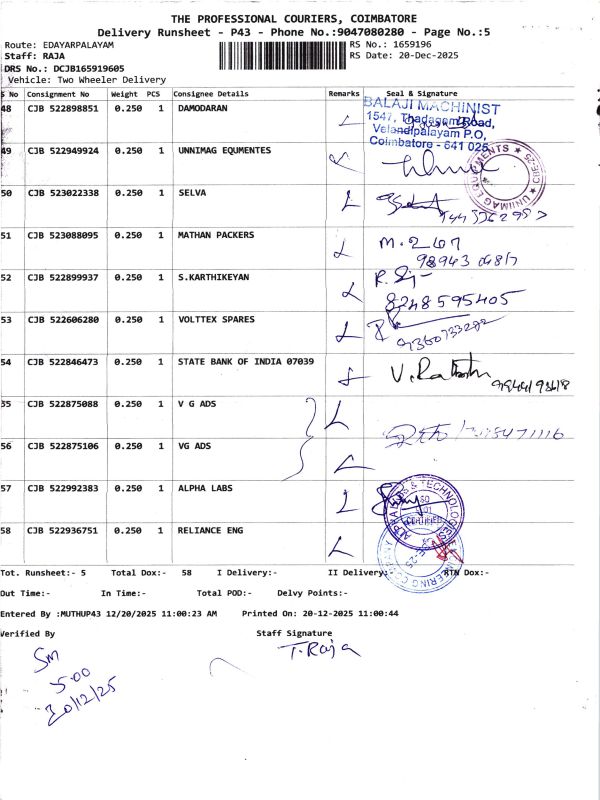 THE PROFESSIONAL COURIERS, COIMBATORE
Delivery Runsheet - P43 - Phone No.:9047080280 - Page No.:5
Route: EDAYARPALAYAM RS No.: 1659196
Staff: RAJA RS Date: 20-Dec-2025
DRS No.: DCJB165919605
Vehicle: Two Wheeler Delivery
S No Consignment No Weight PCS Consignee Details Remarks Seal & Signature
48 CJB 522898851 0.250 1 DAMODARAN
BALAJI MACHINIST
1547, Thadagam Road,
Velandipalayam P.O,
Coimbatore - 641 025
49 CJB 522949924 0.250 1 UNNIMAG EQUMENTES
50 CJB 523022338 0.250 1 SELVA
51 CJB 523088095 0.250 1 MATHAN PACKERS
52 CJB 522899937 0.250 1 S.KARTHIKEYAN
8248595405
53 CJB 522606280 0.250 1 VOLTTEX SPARES
9360733282
54 CJB 522846473 0.250 1 STATE BANK OF INDIA 07039
55 CJB 522875088 0.250 1 V G ADS
56 CJB 522875106 0.250 1 VG ADS
57 CJB 522992383 0.250 1 ALPHA LABS
58 CJB 522936751 0.250 1 RELIANCE ENG
Tot. Runsheet:- 5 Total Dox:- 58 I Delivery:- II Delivery:- RTN Dox:-
Out Time:- In Time:- Total POD:- Delvy Points:-
Entered By :MUTHUP43 12/20/2025 11:00:23 AM Printed On: 20-12-2025 11:00:44
Verified By Staff Signature
T. Raja
Sm
5.00
20/12/25